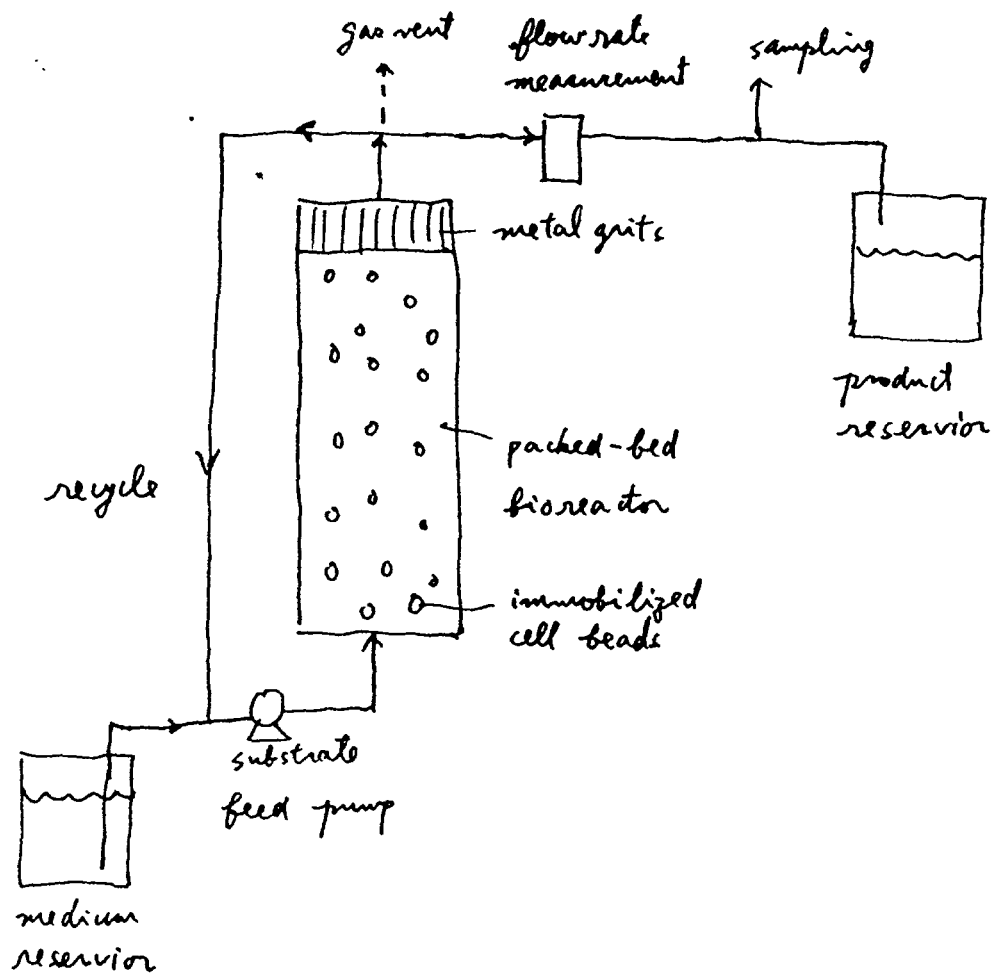 gas vent
flow rate
measurement
sampling
metal grits
product
reservior
packed-bed
bioreactor
recycle
immobilized
cell beads
substrate
feed pump
medium
reservior